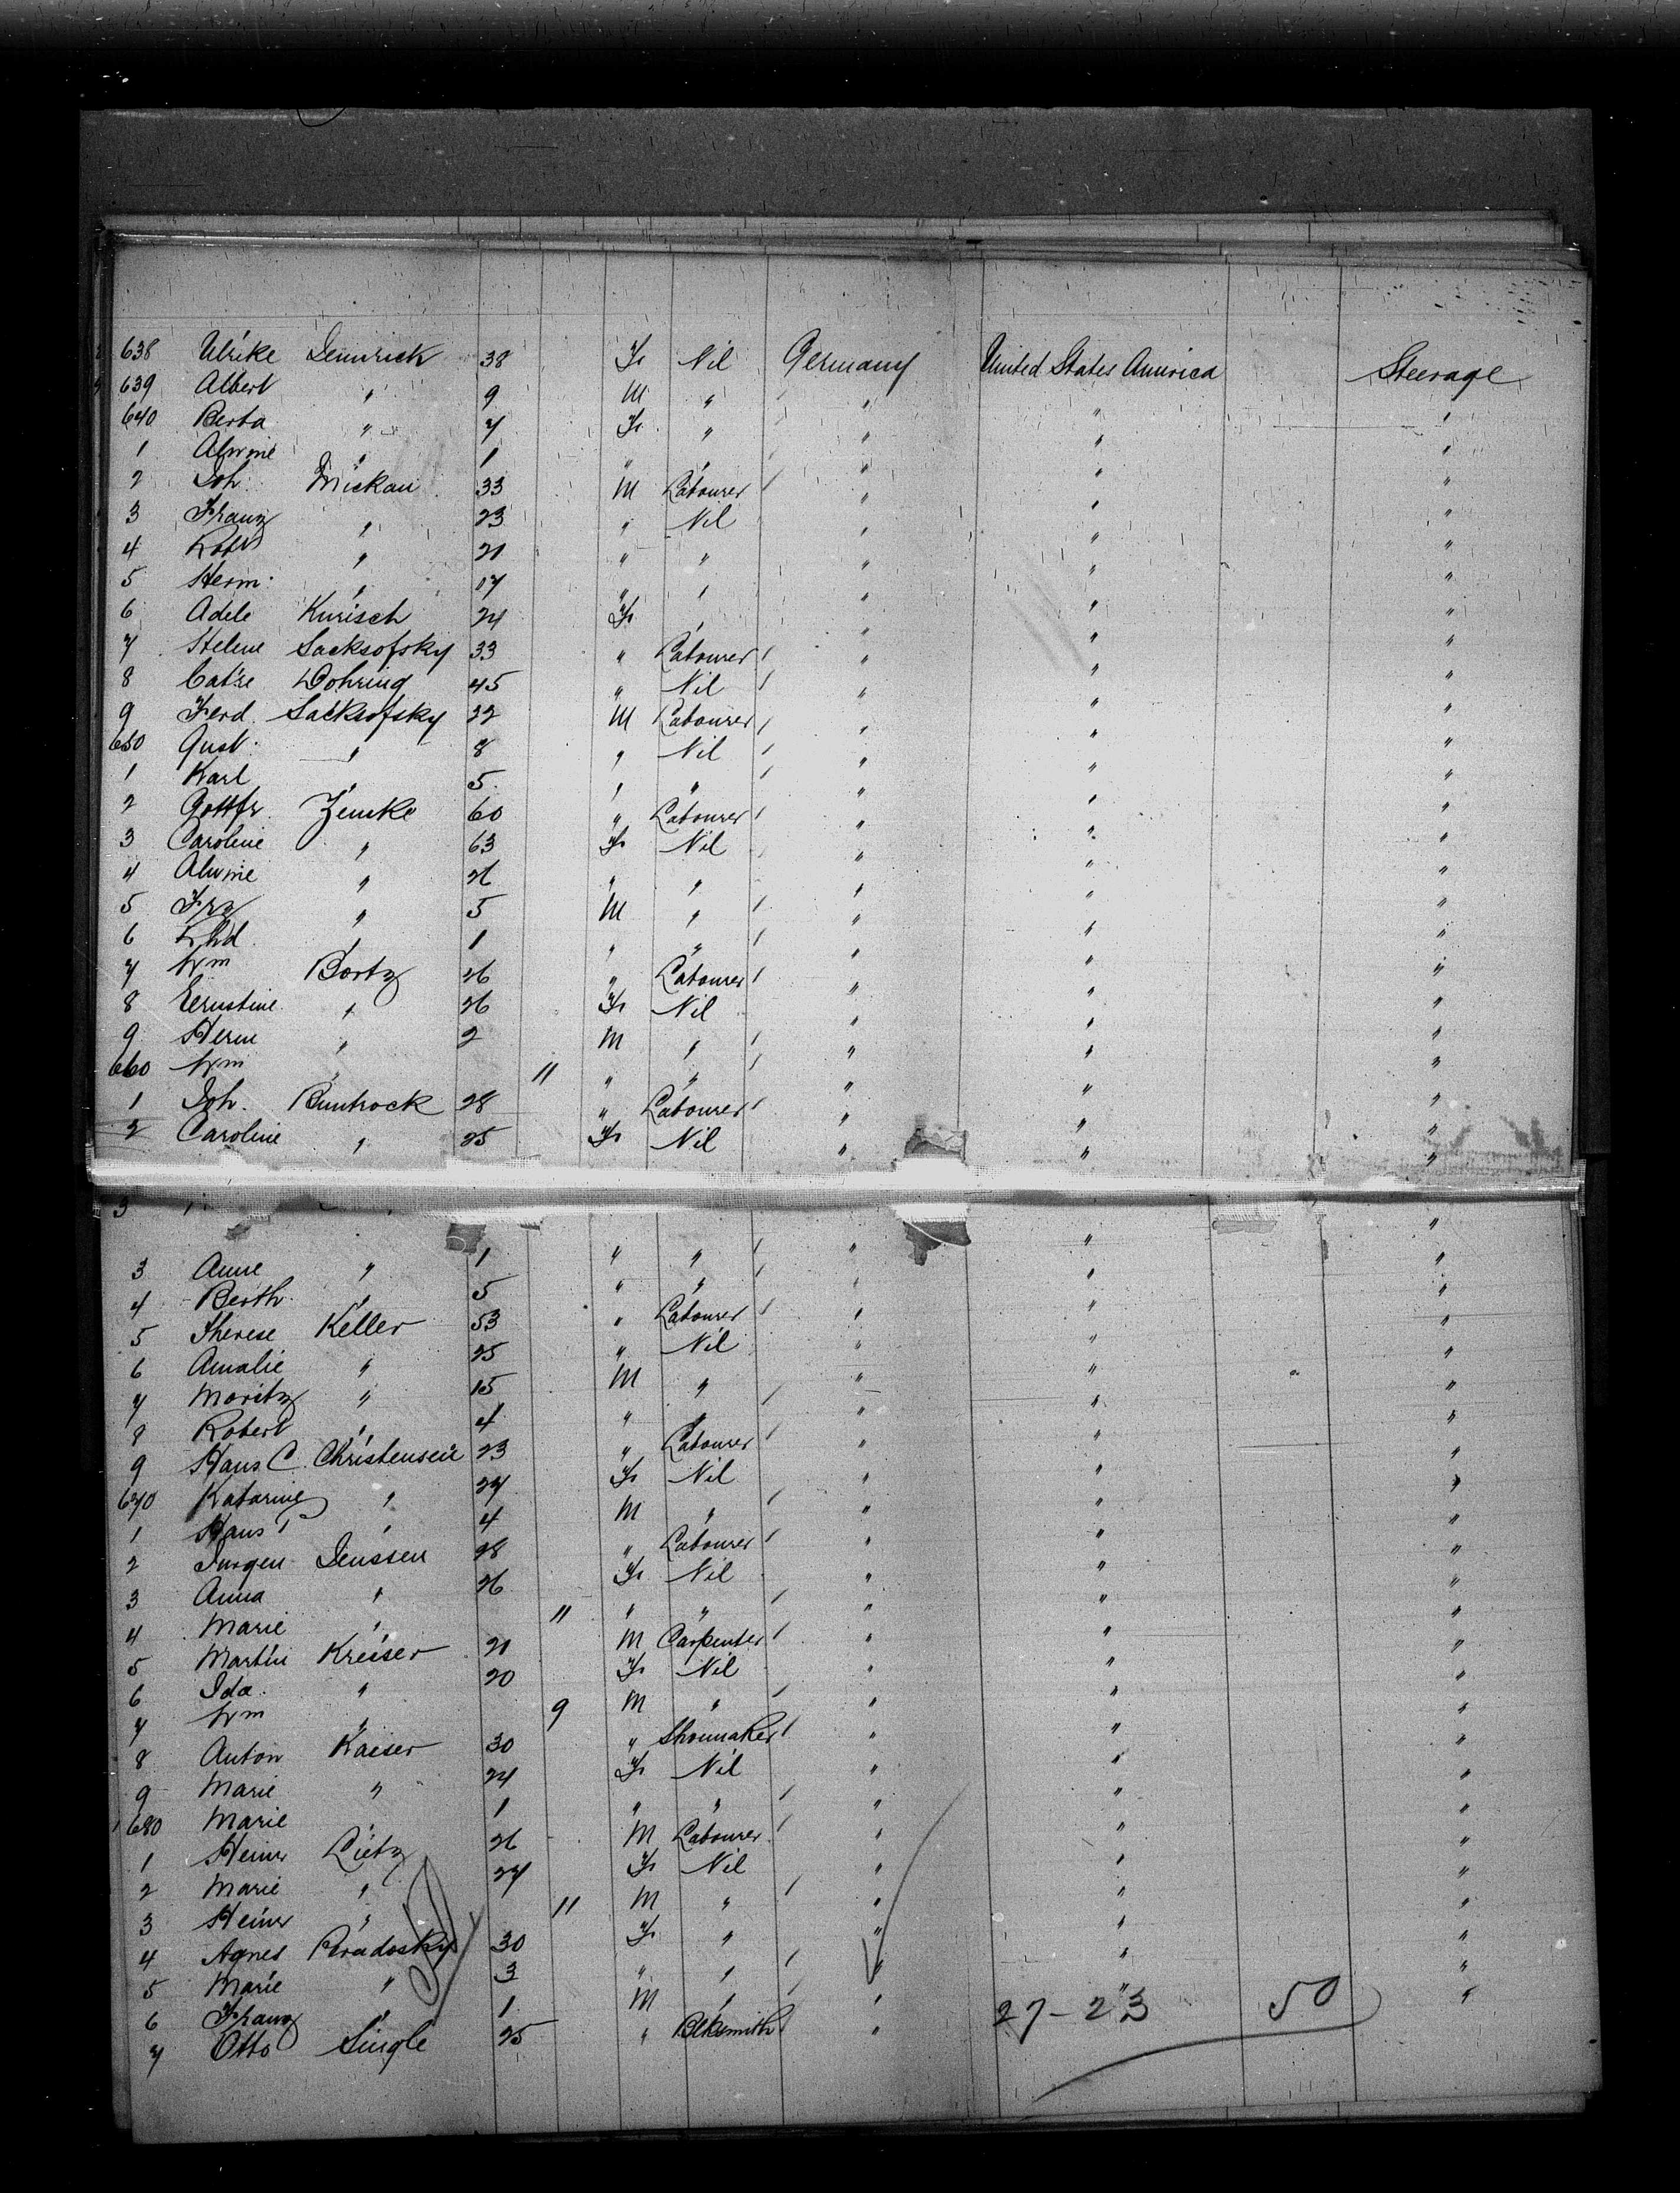 638 Ulrike Demrick 38 F Nil Germany United States America Steerage
639 Albert " 9 M " " " "
640 Berta " 7 F " " " "
1 Alwine " 1 " " " " "
2 Joh. Mickau 33 M Labourer " " "
3 Franz " 23 " Nil " " "
4 " 21 " " " " "
5 Herm. " 17 " " " " "
6 Adele Kurisch 24 F " " " "
7 Helene Sacksofsky 33 " Labourer " " "
8 Dohring 45 " Nil " " "
9 Ferd. Sacksofsky 32 M Labourer " " "
650 Gust. " 8 " Nil " " "
1 Karl " 5 " " " " "
2 Gottfr Zemke 60 " Labourer " " "
3 Caroline " 63 F Nil " " "
4 Alwine " 26 " " " " "
5 Frz " 5 M " " " "
6 " 1 " " " " "
7 Wm Bortz 26 " Labourer " " "
8 Ernstine " 26 F Nil " " "
9 Herm " 2 M " " " "
660 Wm " 11 " " " " "
1 Joh. Buntrock 28 " Labourer " " "
2 Caroline " 25 F Nil " " "
3
3 Anne " 1 " " " " "
4 Berth. " 5 " " " " "
5 Therese Keller 53 " Labourer " " "
6 Amalie " 25 " Nil " " "
7 Moritz " 15 M " " " "
8 Robert " 4 " " " " "
9 Hans C Christensen 23 " Labourer " " "
670 Katarine " 27 F Nil " " "
1 Hans " 4 M " " " "
2 Jurgen Jenssen 28 " Labourer " " "
3 Anna " 26 F Nil " " "
4 Marie " 11 " " " " "
5 Martin Kreiser 21 M Carpenter " " "
6 Ida " 20 F Nil " " "
7 Wm " 9 M " " " "
8 Anton Kaiser 30 " Shoemaker " " "
9 Marie " 24 F Nil " " "
680 Marie " 1 " " " " "
1 Heinr Lietz 26 M Labourer " " "
2 Marie " 27 F Nil " " "
3 Heinr " 11 M " " " "
4 Agnes 30 F " " " "
5 Marie " 3 " " " " "
6 Franz " 1 M " " " "
7 Otto Single 25 " Blksmith " 27-23 50